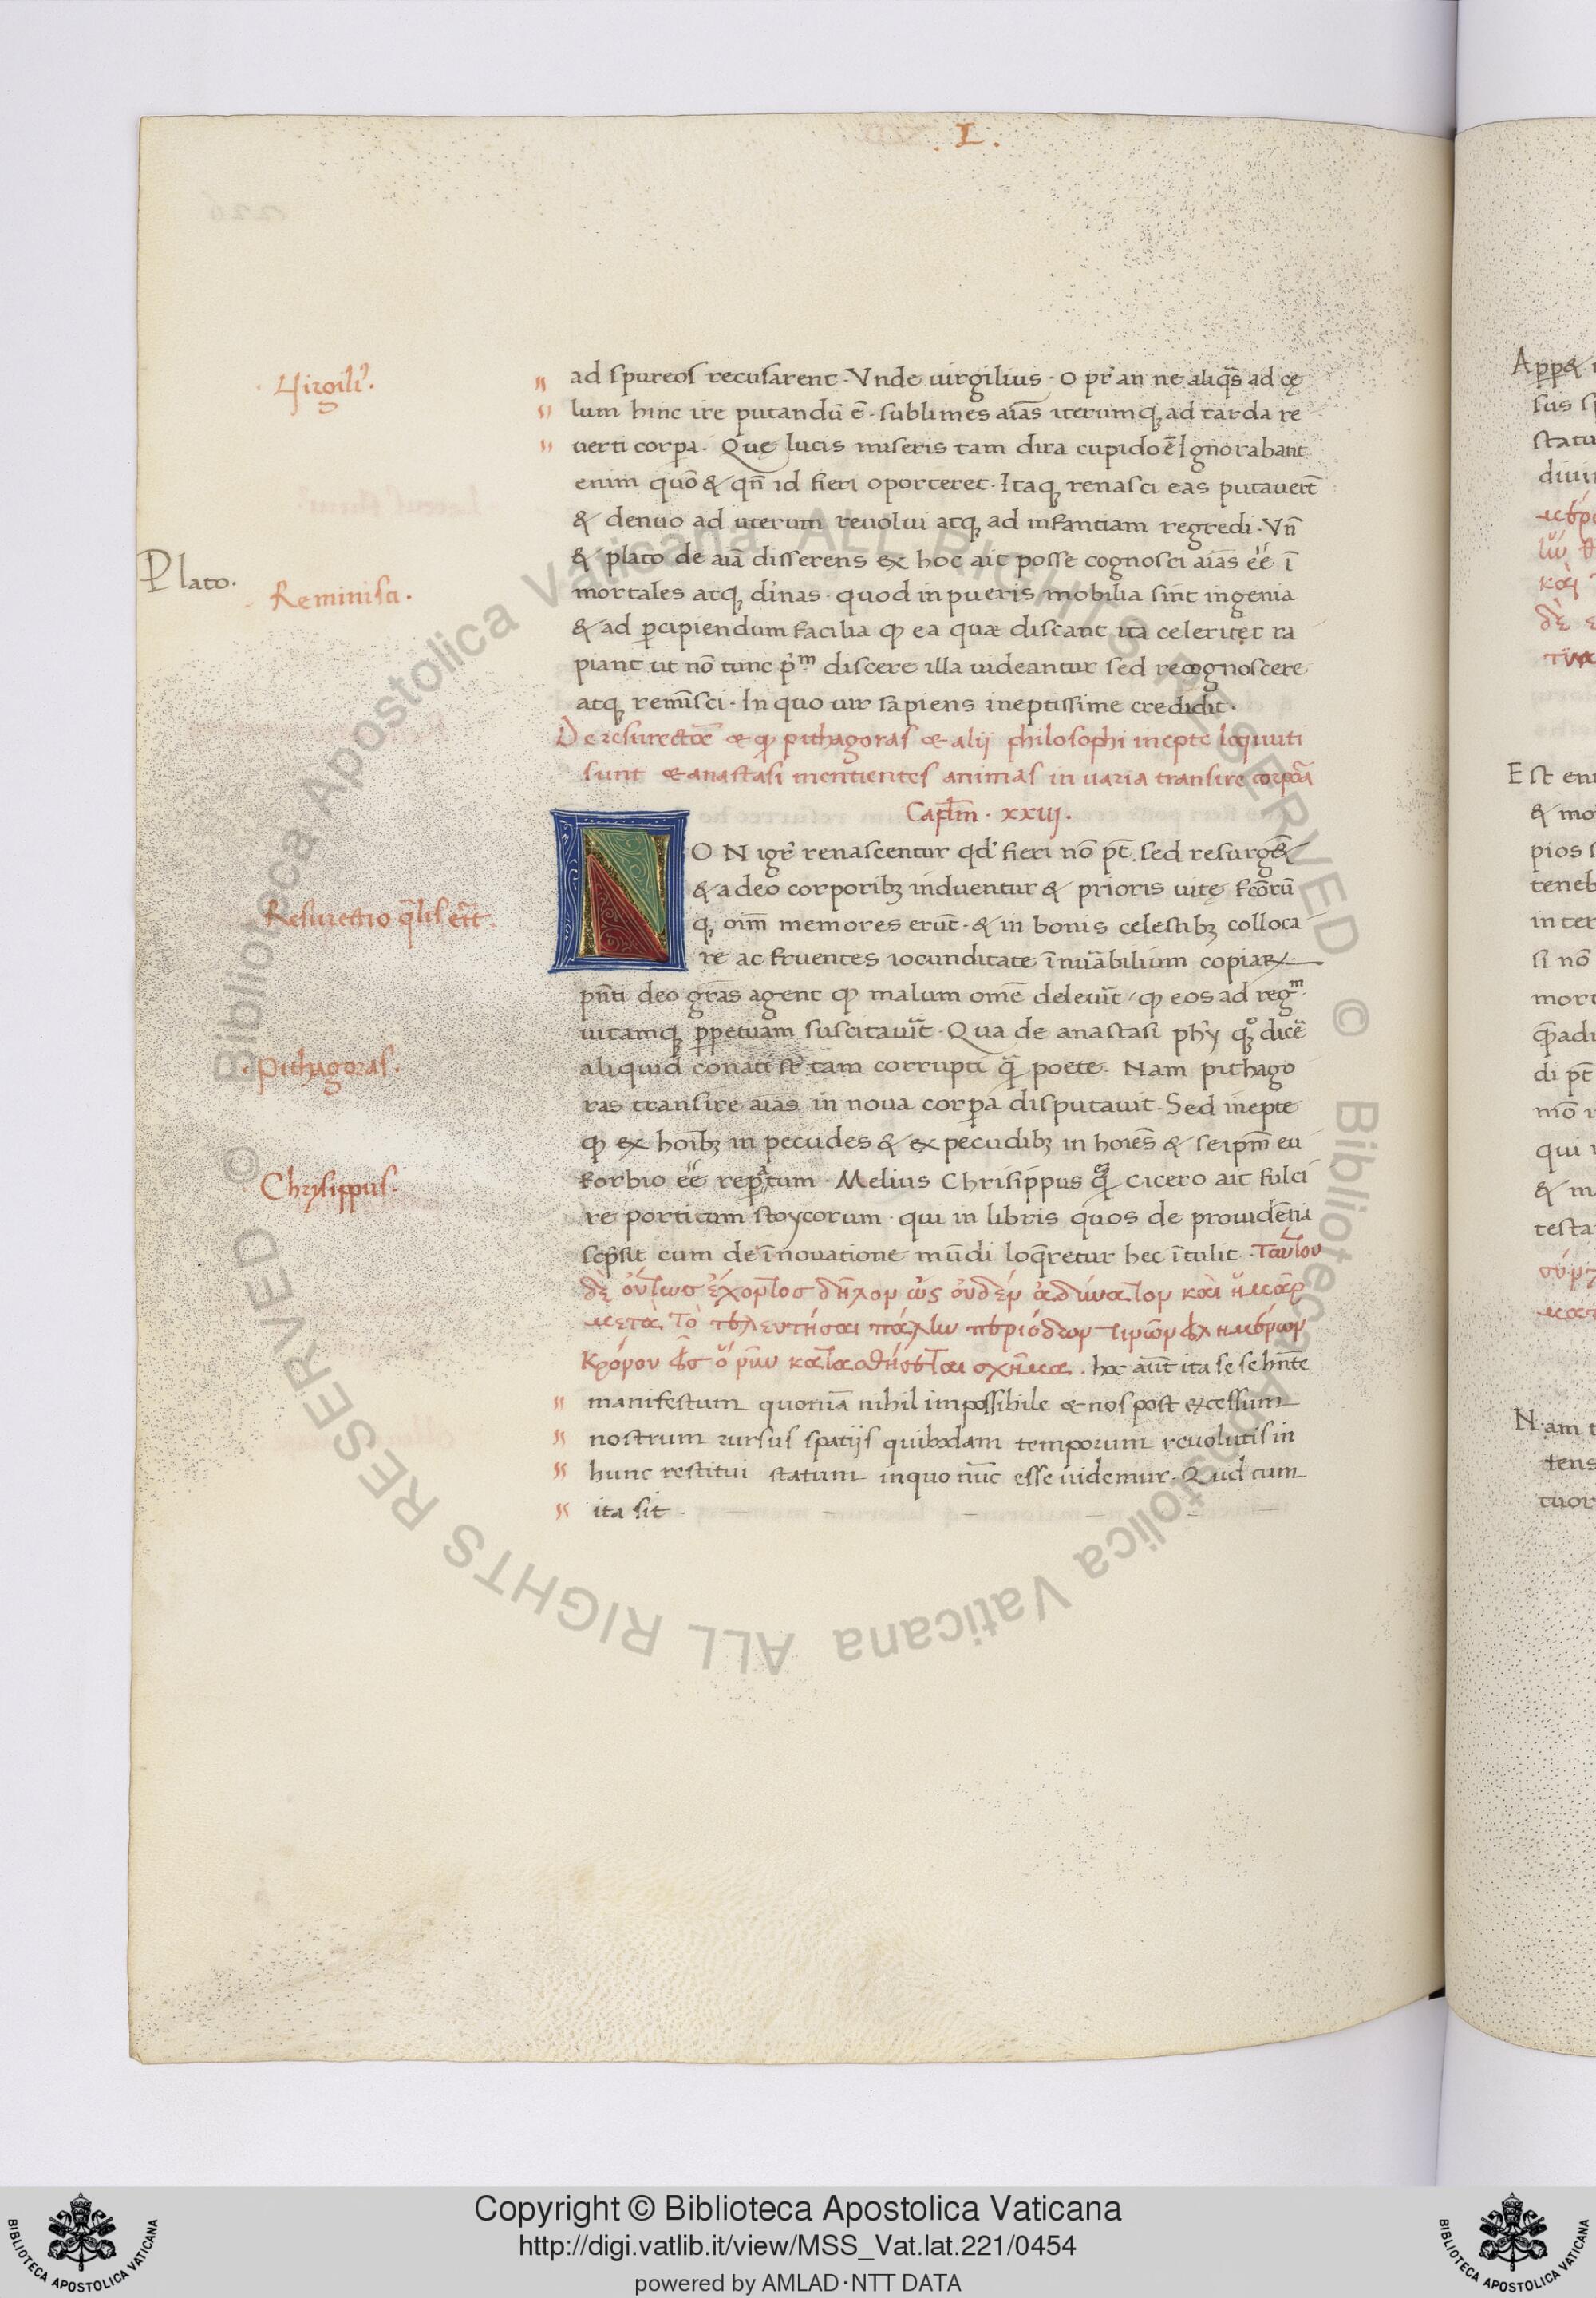 . L .
· Virgili᾽ .
ad spureos recusarent · Vnde uirgilius · O pr̄ an ne aliq̄s ad cę
lum hinc ire putandū ē · sublimes aīas iterumq, ad tarda re
uerti corpa · Quę lucis miseris tam dira cupido ē Ignorabant
enim quō & qn̄ id fieri oporteret · Itaq, renasci eas putauert̄
& denuo ad uterum reuolui atq, ad infantiam regredi · Vn̄
Plato .
& plato de aīa disserens ex hoc ait posse cognosci aīas eē ī
Reminisci .
mortales atq, diūnas · quod in pueris mobilia sint ingenia
& ad ꝑcipiendum facilia ꝙ ea quæ discant ita celeriter ra
piant ut nō tunc p̓ᵐ discere illa uideantur sed recognoscere
atq, remīsci · In quo uir sapiens ineptissime credidit ·
De resurectōe & ꝙ pithagoras & alij philosophi inepte loquuti
sunt & anastasi mentientes animas in uaria transire corpora
Capl̄m · xxiij .
NON igr̄ renascentur qd̓ fieri nō pt̄ . sed resurg&
& a deo corporibꝫ induentur & prioris uitę fcōrū
Resurectio q̄lis erit .
q, oim̄ memores erūt · & in bonis celestibꝫ colloca
re ac fruentes iocunditate īnūabilium copiaꝝ
pn̄ti deo grās agent ꝙ malum omē deleuīt / ꝙ eos ad regᵐ.
uitamq, ꝑpetuam suscitauīt · Qua de anastasi phȳ qꝫ° dicē
· Pithagoras .
aliquid conati st̄ tam corrupti q̄ poete · Nam pithago
ras transire aīas in noua corpa disputauit · Sed inepte
ꝙ ex hoībꝫ in pecudes & ex pecudibꝫ in hoīes & seipm̄ eu
Chrysippus .
forbio eē repatum · Melius Chrisippus q̄ cicero ait fulci
re porticum stoycorum · qui in libris quos de prouidētia
scpsit cum de īnouatione mūdi loq̄retur hec ītulit · Τούτου
δὲ οὕτωσ ἔχοντοσ δῆλον ὡς οὐδὲν ἀδύνατον καὶ ἡμᾶς
μετὰ τὸ τελευτῆσαι πάλιν περιόδων τινῶν εἰλημένων
χρόνου εἰσ ὃ νῦν καταστήσεται σχῆμα . hoc aūt ita se se hn̄te
manifestum quoniā nihil impossibile & nos post excessum
nostrum rursus spatijs quibusdam temporum reuolutis in
hunc restitui statum inquo nūc esse uidemur · Qud cum
ita sit .
Copyright © Biblioteca Apostolica Vaticana
http://digi.vatlib.it/view/MSS_Vat.lat.221/0454
powered by AMLAD·NTT DATA